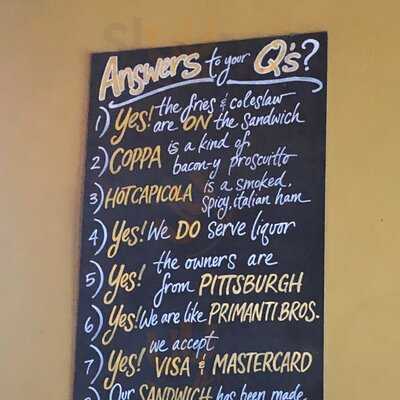 Answers to your Q's?
1) Yes! the fries & coleslaw
are ON the sandwich
2) COPPA is a kind of
bacon-y proscuitto
3) HOT CAPICOLA is a smoked,
spicy, italian ham
4) Yes! We DO serve liquor
5) Yes! the owners are
from PITTSBURGH
6) Yes! We are like PRIMANTI BROS.
7) Yes! we accept
VISA & MASTERCARD
Our SANDWICH has been made